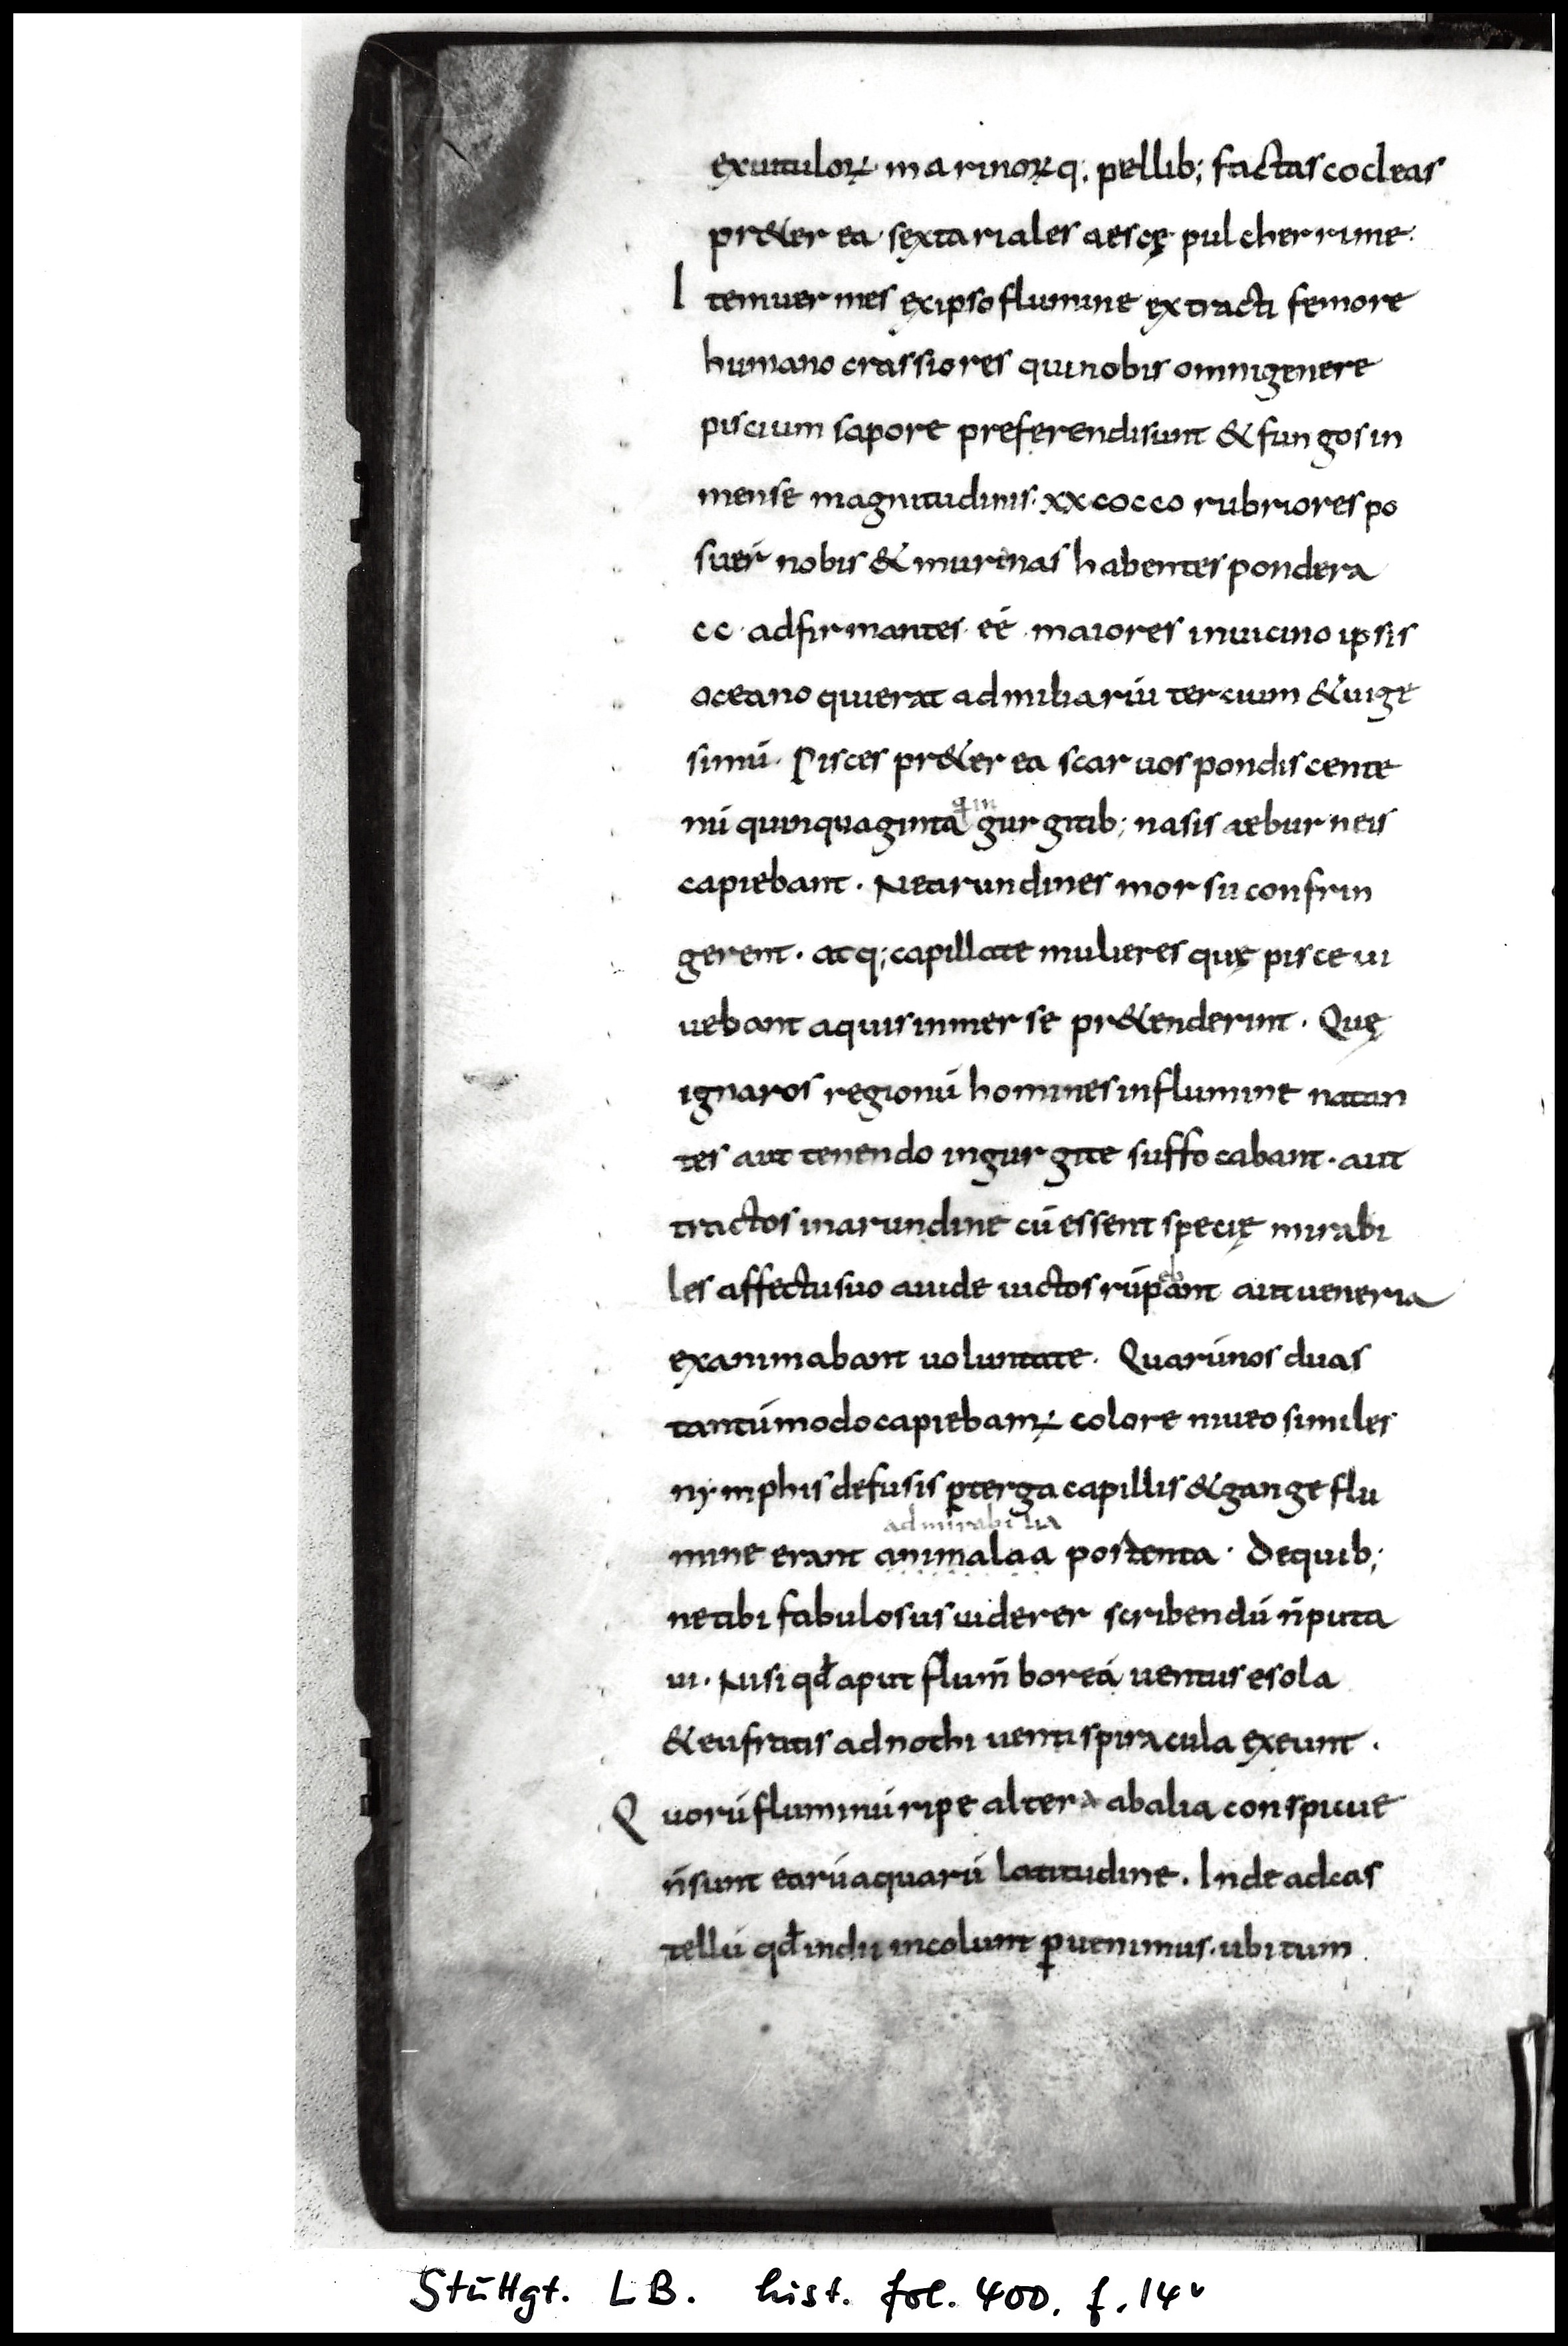 exuitulorꝝ marinorꝝq; pellib; factas cocleas
pr&er ea sextariales aescę pulcherrime.
Item uermes ex ipso flumine extracti femore
humano crassiores qui nobis omni genere
piscium sapore preferendi sunt & fungos in
mense magnitudinis. xx cocco rubriores po
suer̄ nobis & murenas habentes pondera
cc. adfirmantes. eē maiores in uicino ipsis
oceano qui erat ad miliariū tercium & uige
simū. Pisces pr&er ea scaruos pondis cente
nū quinquaginta gurgitib; nasis aeburneis
capiebant. Ne arundines morsu confrin
gerent. atq; capillate mulieres quę pisce ui
uebant aquis inmerse pr&enderint. Quę
ignaros regionū homines in flumine natan
tes aut tenendo in gurgite suffocabant. aut
tractos in arundine cū essent specię mirabi
les affectu suo auide uictos rūpebant aut ueneria
exanimabant uoluntate. Quarū nos duas
tantūmodo capiebamꝝ colore niueo similes
nymphis defusis p̱ terga capillis & gange flu
admirabilia
mine erant animalaa postenta. De quib;
ne tibi fabulosus uiderer scribendū n̄ puta
ui. Nisi qđ aput flum̄ boreā uentus e sola
& eufratis ad nothi uenti spiracula exeunt.
Quorū fluminū ripe altera ab alia conspicue
n̄ sunt earū aquarū latitudine. Inde ad cas
tellū qđ indii incolunt ꝑuenimus. ubi tum
Stuttgt. LB. hist. fol. 400. f. 14v